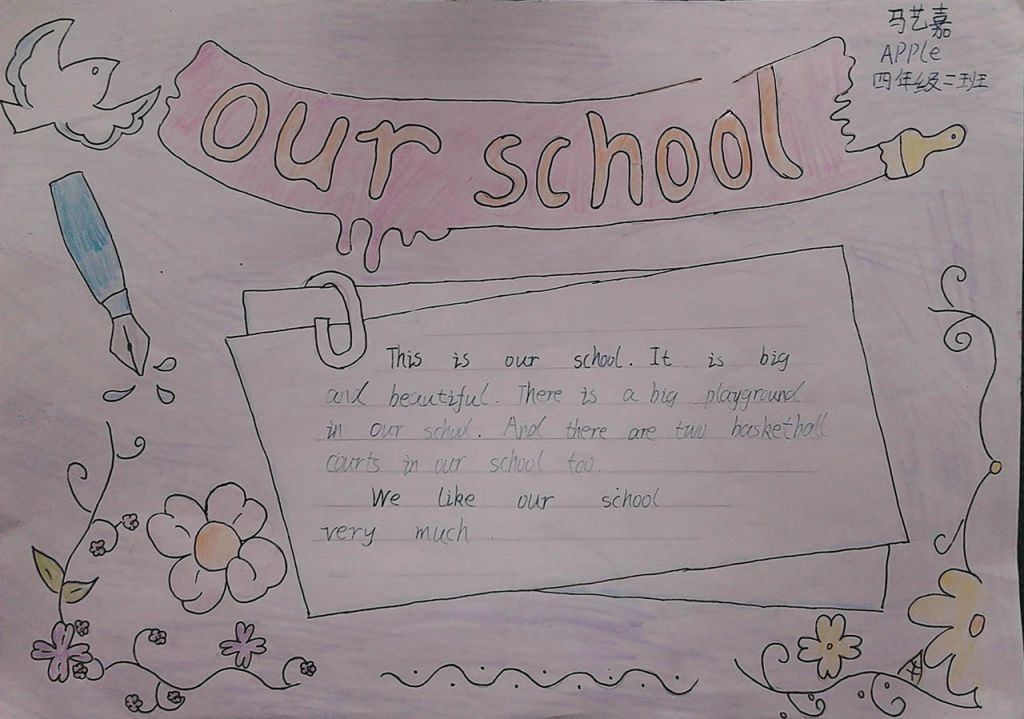 马艺嘉
APPle
四年级三班
our school
This is our school. It is big
and beautiful. There is a big playground
in our school. And there are two basketball
courts in our school too.
We like our school
very much.